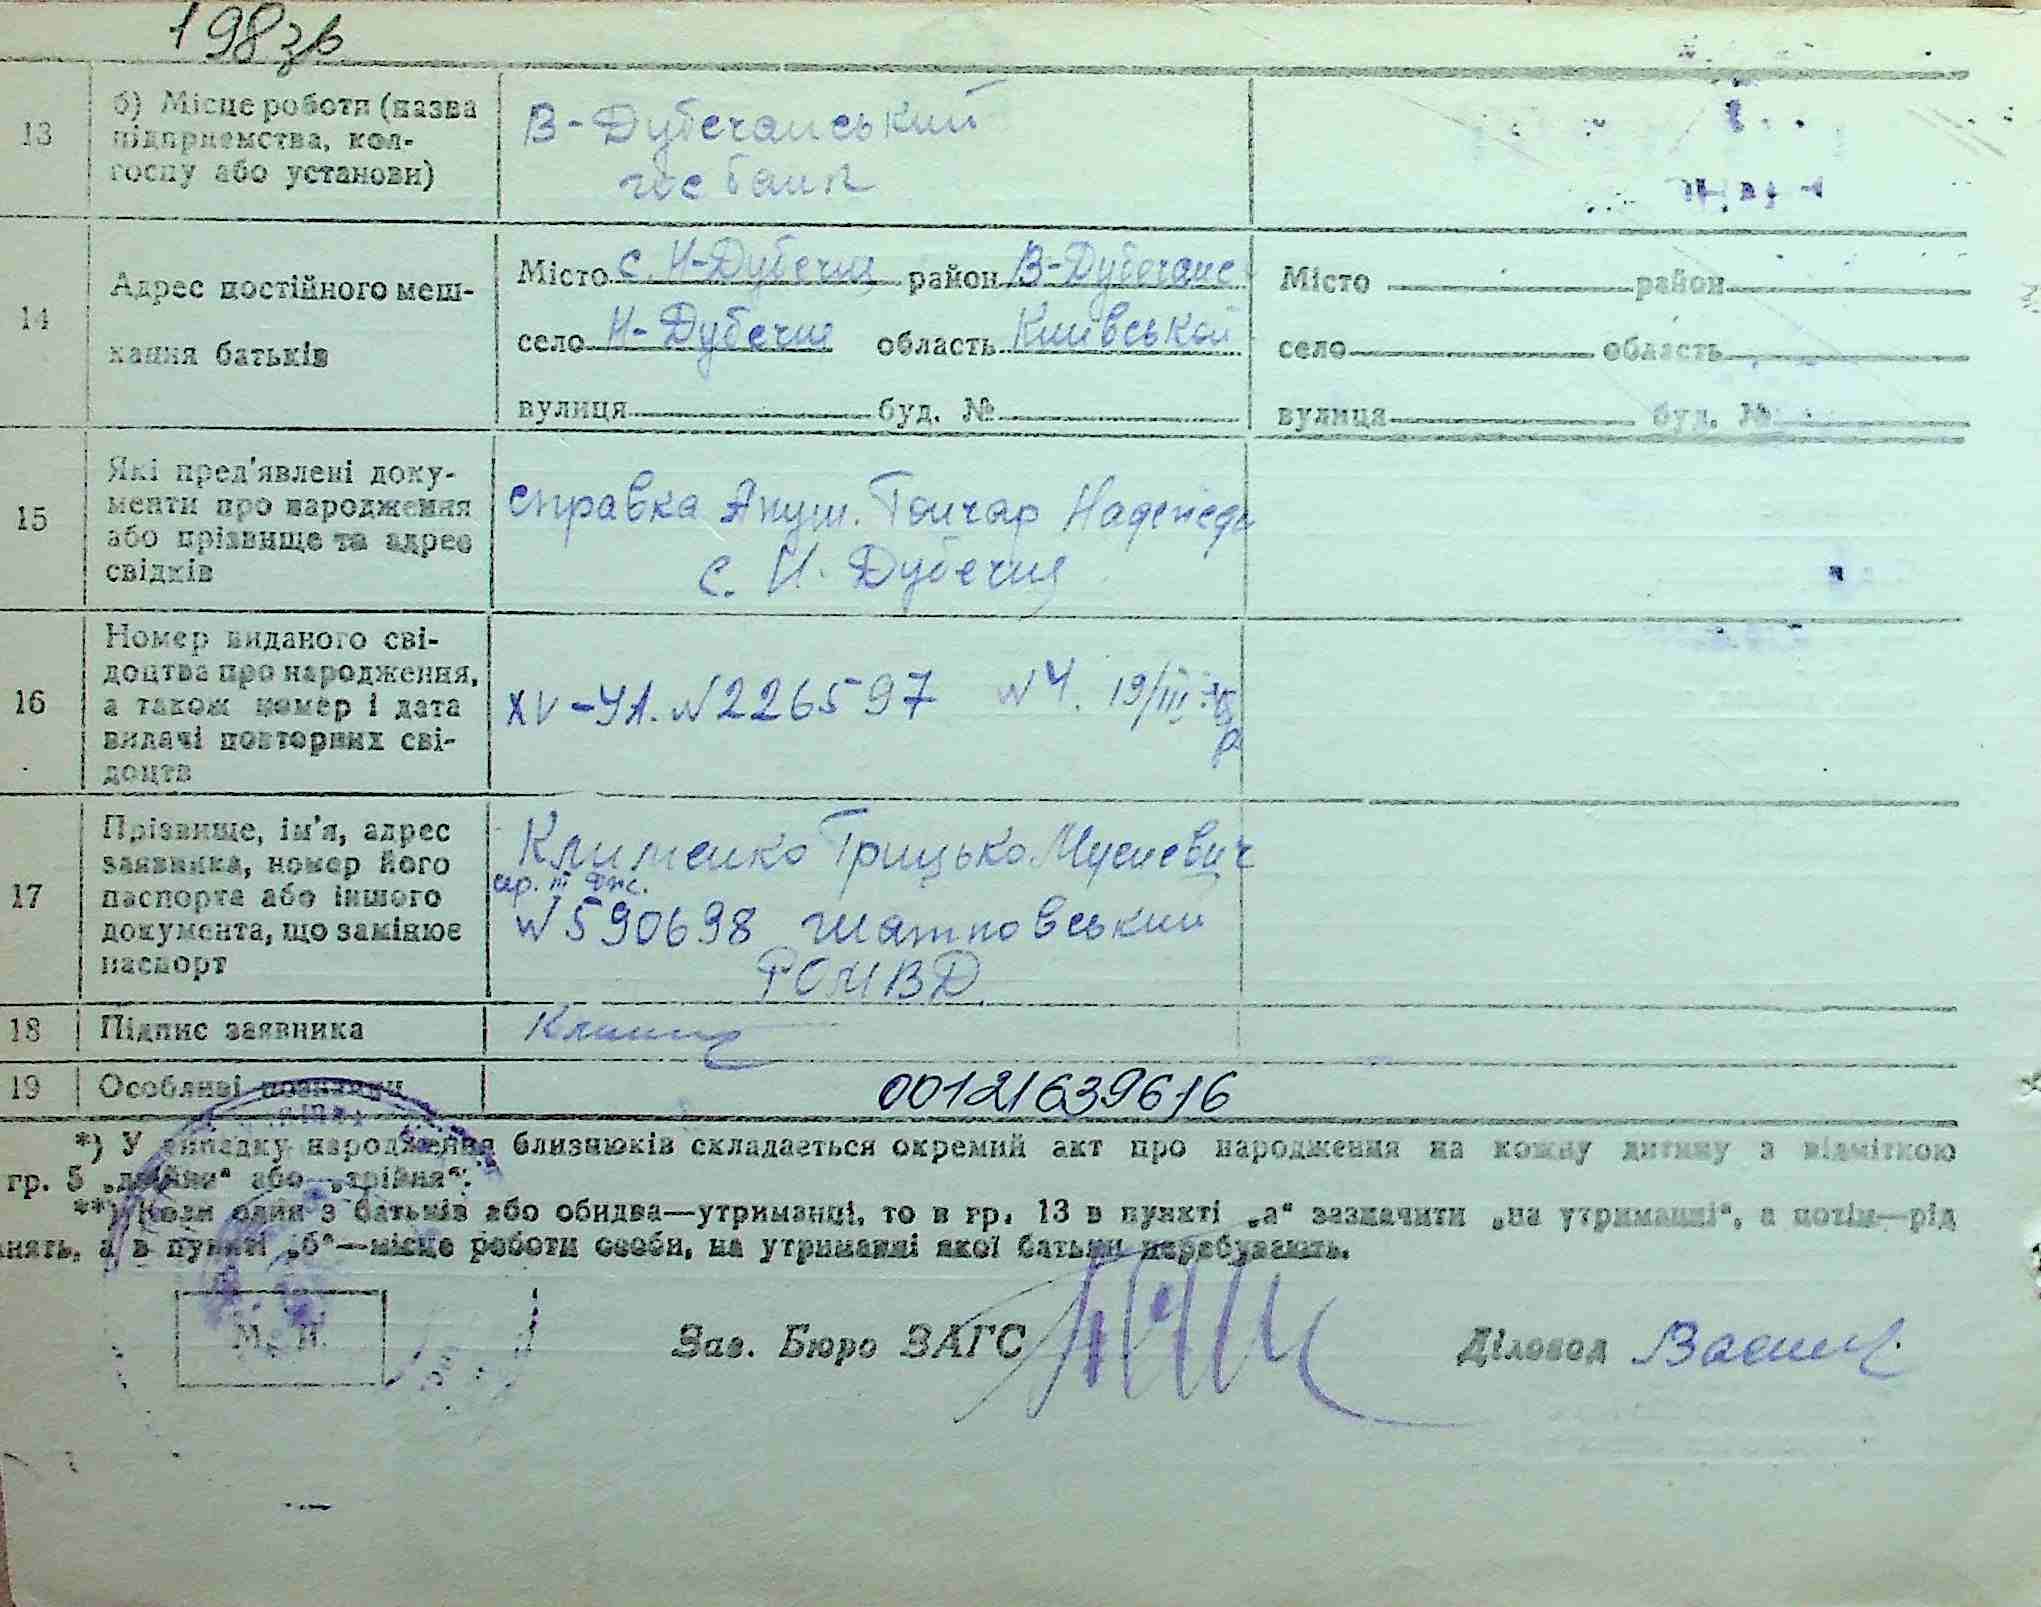 198зв
13
б) Місце роботи (назва
підприємства, кол-
госпу або установи)
В-Дубечанський
госбанк
14
Адрес постійного меш-
кання батьків
Місто с. Н-Дубечня район В-Дубечанс
село Н-Дубечня область Київської
вулиця буд. №
Місто район
село область
вулиця буд. №
15
Які пред'явлені доку-
менти про народження
або прізвище та адрес
свідків
справка Акуш. Гончар Надежди
с. Н. Дубечня
16
Номер виданого сві-
доцтва про народження,
а також номер і дата
видачі повторних сві-
доцтв
XV-УЛ. N 226597 N 4. 19/III
17
Прізвище, ім'я, адрес
заявника, номер його
паспорта або іншого
документа, що замінює
паспорт
Клименко Грицько Мусиевич
сер. III
N 590698
РОМВД
18
Підпис заявника
19
Особливі позначки
00121639616
*) У випадку народження близнюків складається окремий акт про народження на кожну дитину з відміткою
гр. 5 „двійня" або „трійня".
**) Коли один з батьків або обидва—утриманці, то в гр. 13 в пункті „а" зазначити „на утриманні", а потім—рід
нять, а в пункті „б"—місце роботи особи, на утриманні якої батьки перебувають.
М. П.
Зав. Бюро ЗАГС
Діловод